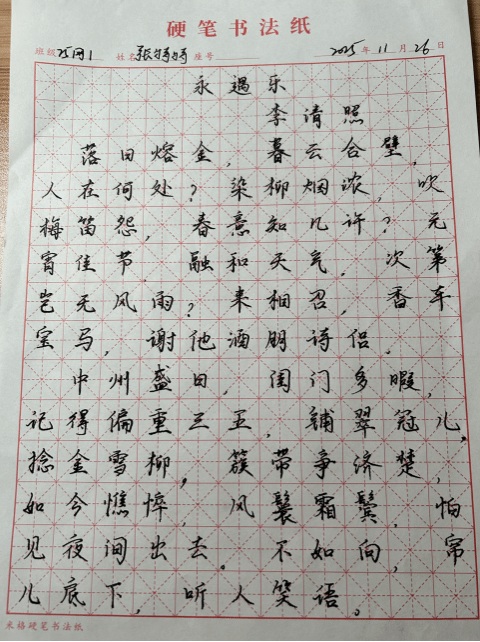 硬笔书法纸
班级 25网1 姓名 张 座号 2025 年 11 月 26 日
永遇乐
李清照
落日熔金，暮云合璧，
人在何处？染柳烟浓，吹
梅笛怨，春意知几许？元
宵佳节，融和天气，次第
岂无风雨？来相召，香车
宝马，谢他酒朋诗侣，
中州盛日，闺门多暇，
记得偏重三五，铺翠冠儿，
捻金雪柳，簇带争济楚，
如今憔悴，风鬟霜鬓，怕
见夜间出去。不如向，帘
儿底下，听人笑语。
米格硬笔书法纸